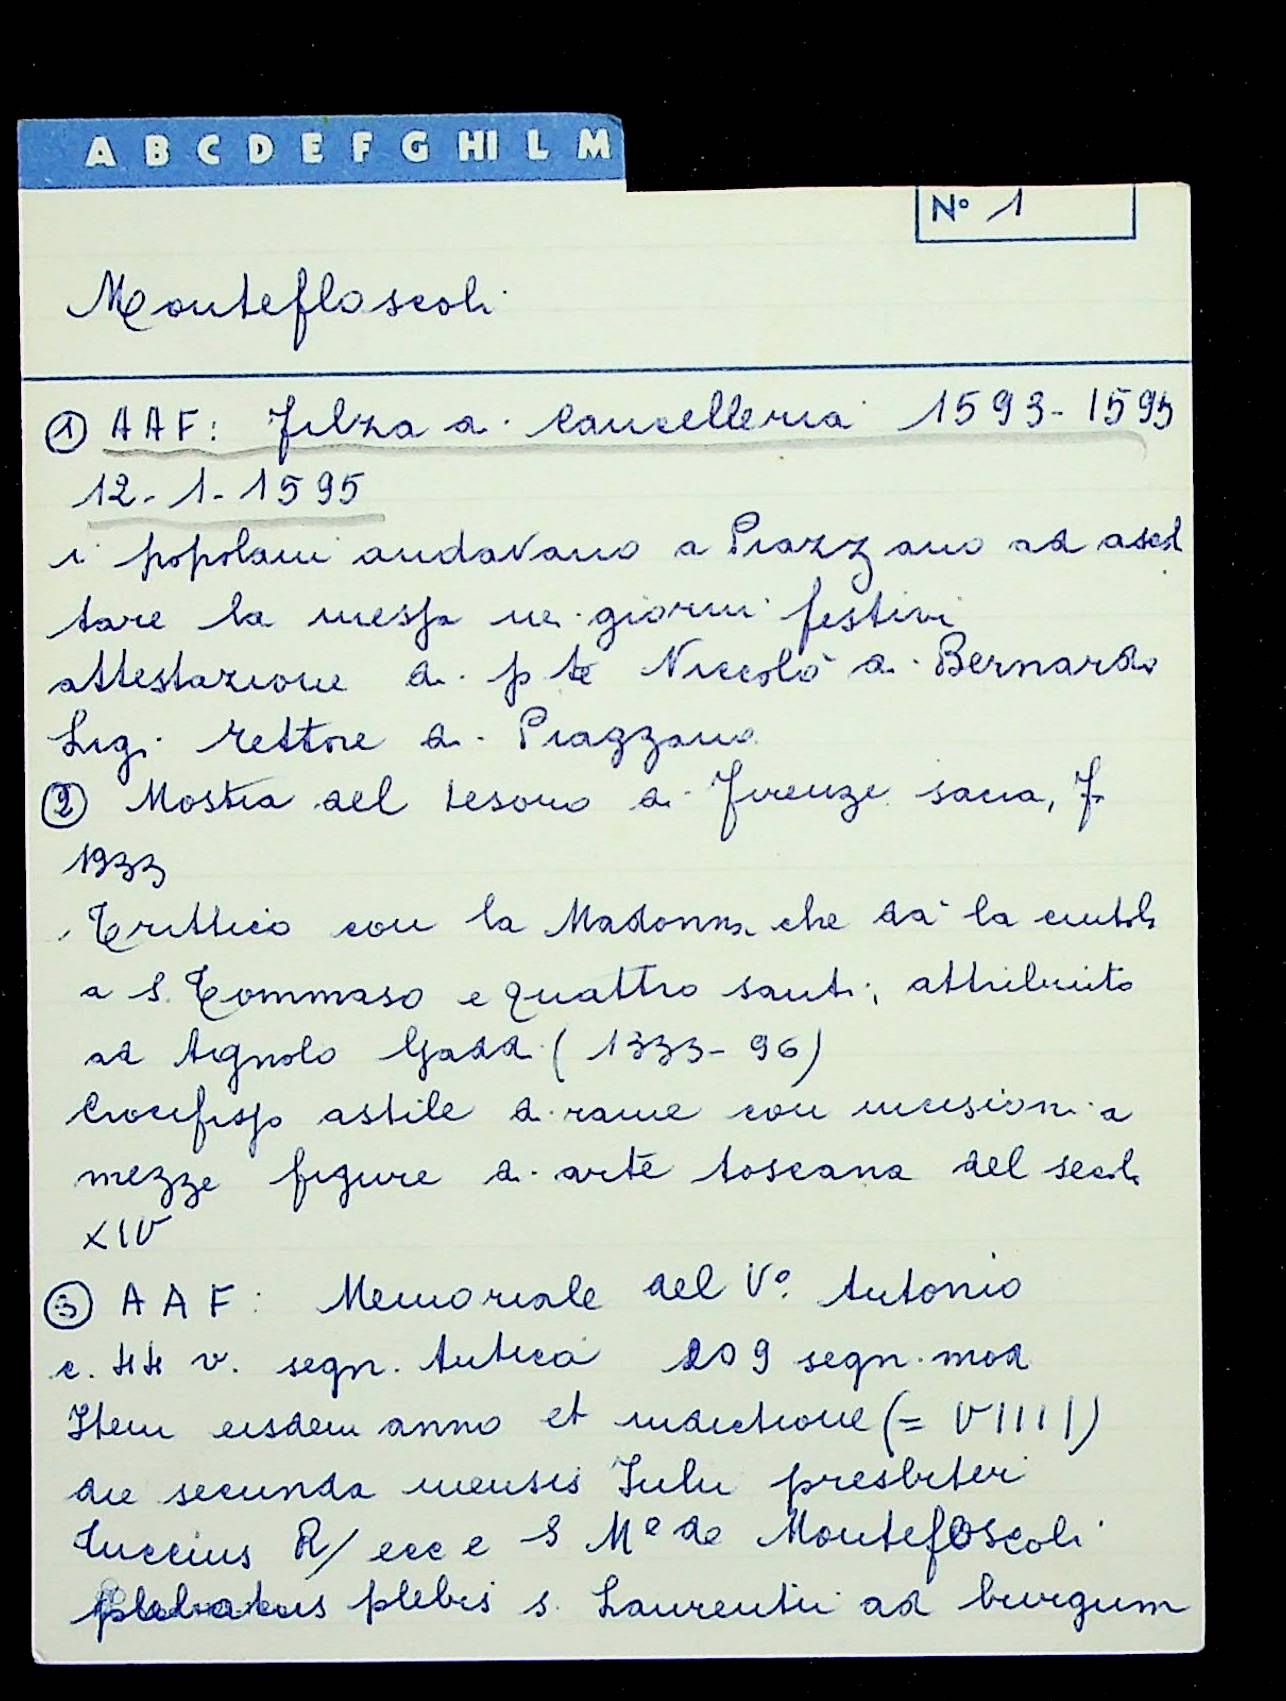 A B C D E F G HI L M
N° 1
Montefloscoli
① AAF: Filza di Cancelleria 1593-1595
12-1-1595
i popolani andavano a Piazzano ad ascol
tare la messa nei giorni festivi
attestazione di pte Niccolò di Bernardo
Ligi rettore di Piazzano
② Mostra del tesoro di Firenze sacra, F.
1933
Trittico con la Madonna che dà la cintola
a S. Tommaso e quattro santi, attribuito
ad Agnolo Gaddi (1333-96)
Crocifisso astile di rame con incisioni a
mezze figure di arte toscana del secolo
XIV
③ AAF: Memoriale del V°. Antonio
c. 44 v. segn. Antica 209 segn. mod
Item eisdem anno et indictione (= VIIII)
die secunda mensis Julii presbiteri
Luccius R/ ecc e S Mᵉ de Montefloscoli
plebatus plebis s. Laurentii ad burgum